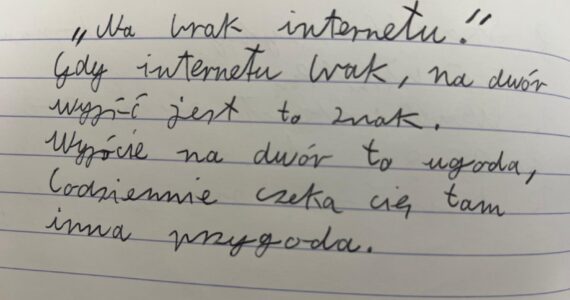 „Na brak internetu."
Gdy internetu brak, na dwór
wyjść jest to znak.
Wyjście na dwór to ugoda,
Codziennie czeka cię tam
inna przygoda.